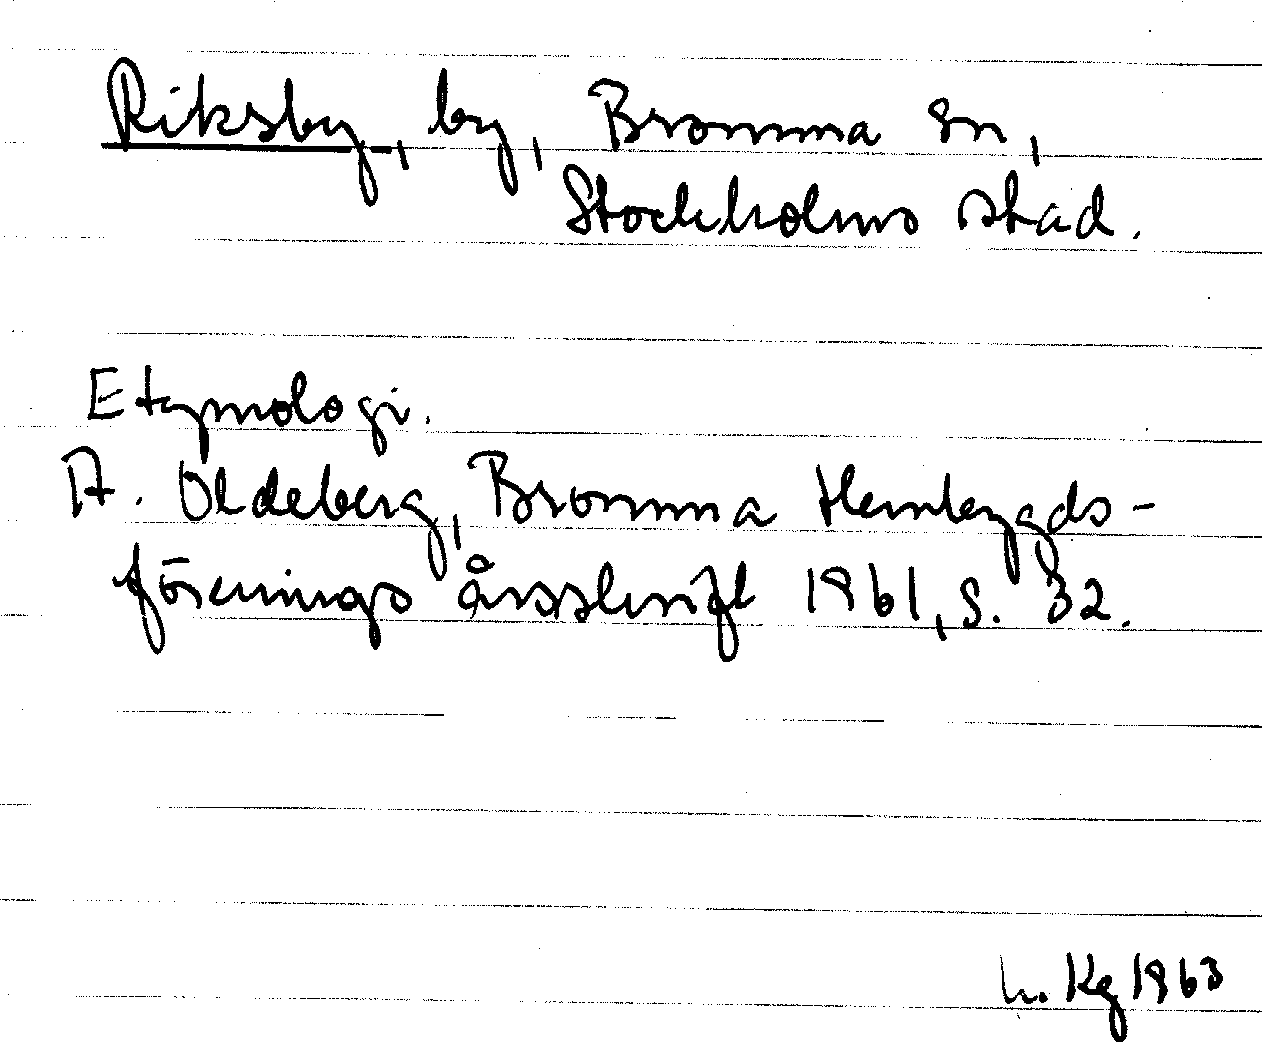 Riksby, by, Bromma sn,
Stockholms stad.
Etymologi.
A. Oldeberg, Bromma Hembygds-
förenings årsskrift 1961, s. 32.
Kg 1963